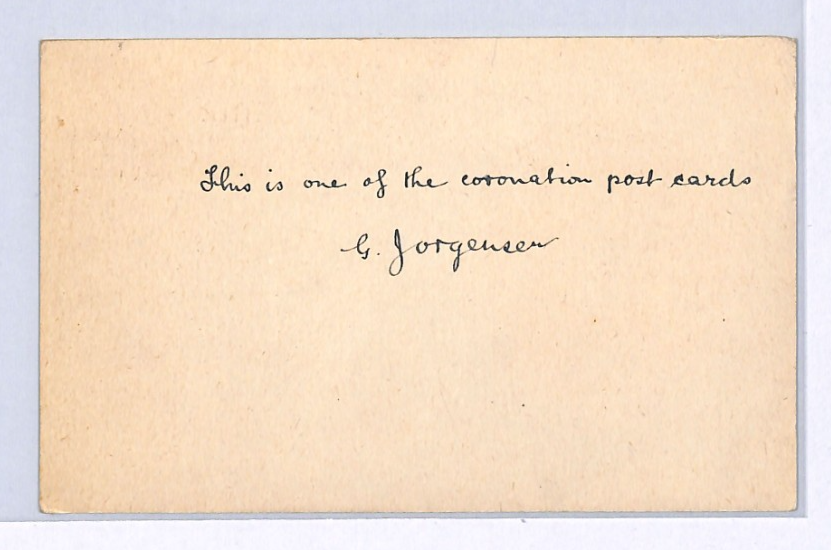 This is one of the coronation post cards
G. Jorgensen